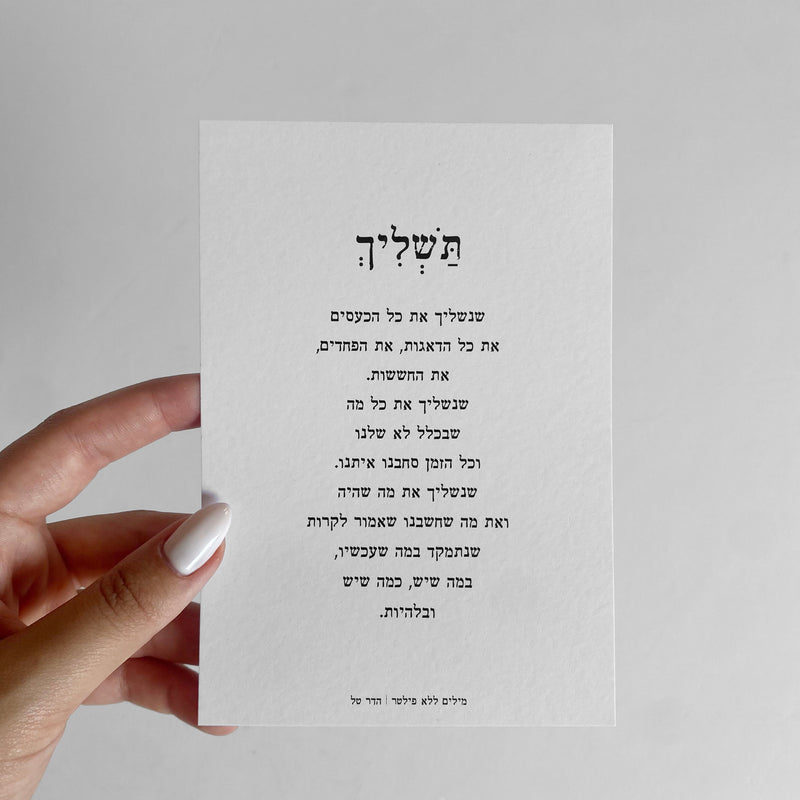 תַּשְׁלִיךְ
שנשליך את כל הכעסים
את כל הדאגות, את הפחדים,
את החששות.
שנשליך את כל מה
שבכלל לא שלנו
וכל הזמן סחבנו איתנו.
שנשליך את מה שהיה
ואת מה שחשבנו שאמור לקרות
שנתמקד במה שעכשיו,
במה שיש, כמה שיש
ובלהיות.
מילים ללא פילטר | הדר טל